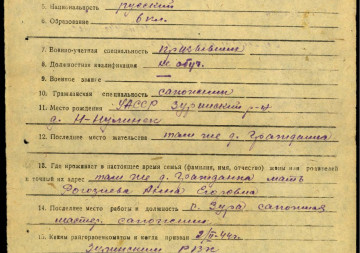 5. Национальность русский
6. Образование 6 кл.
7. Военно-учетная специальность призывник
8. Должностная квалификация не обуч.
9. Военное звание —
10. Гражданская специальность сапожник
11. Место рождения УАССР Зуринский р-н
д. Н-Нулинск
12. Последнее место жительства там же д. Гражданка
13. Где проживает в настоящее время семья (фамилия, имя, отчество) жены или родителей
и точный их адрес там же д. Гражданка мать
Анна
14. Последнее место работы и должность с. Зура сапожная
мастер. сапожник
15. Каким райгорвоенкоматом и когда призван
Зуринским РВК